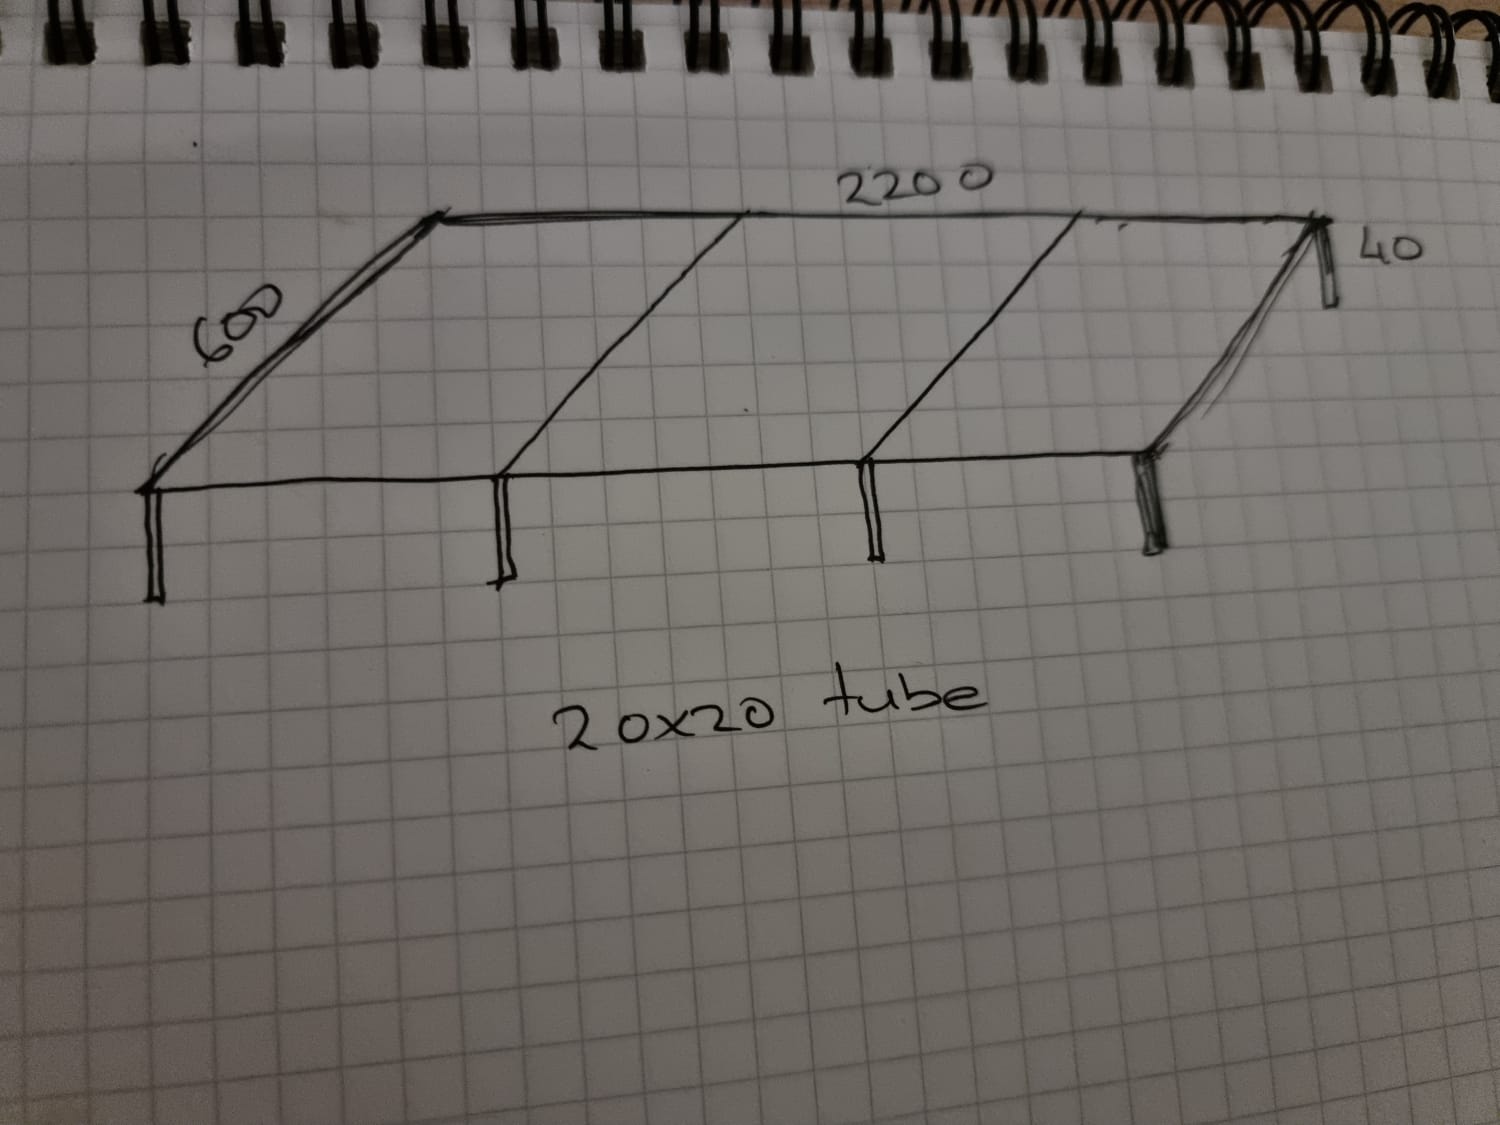 2200
40
600
20x20 tube